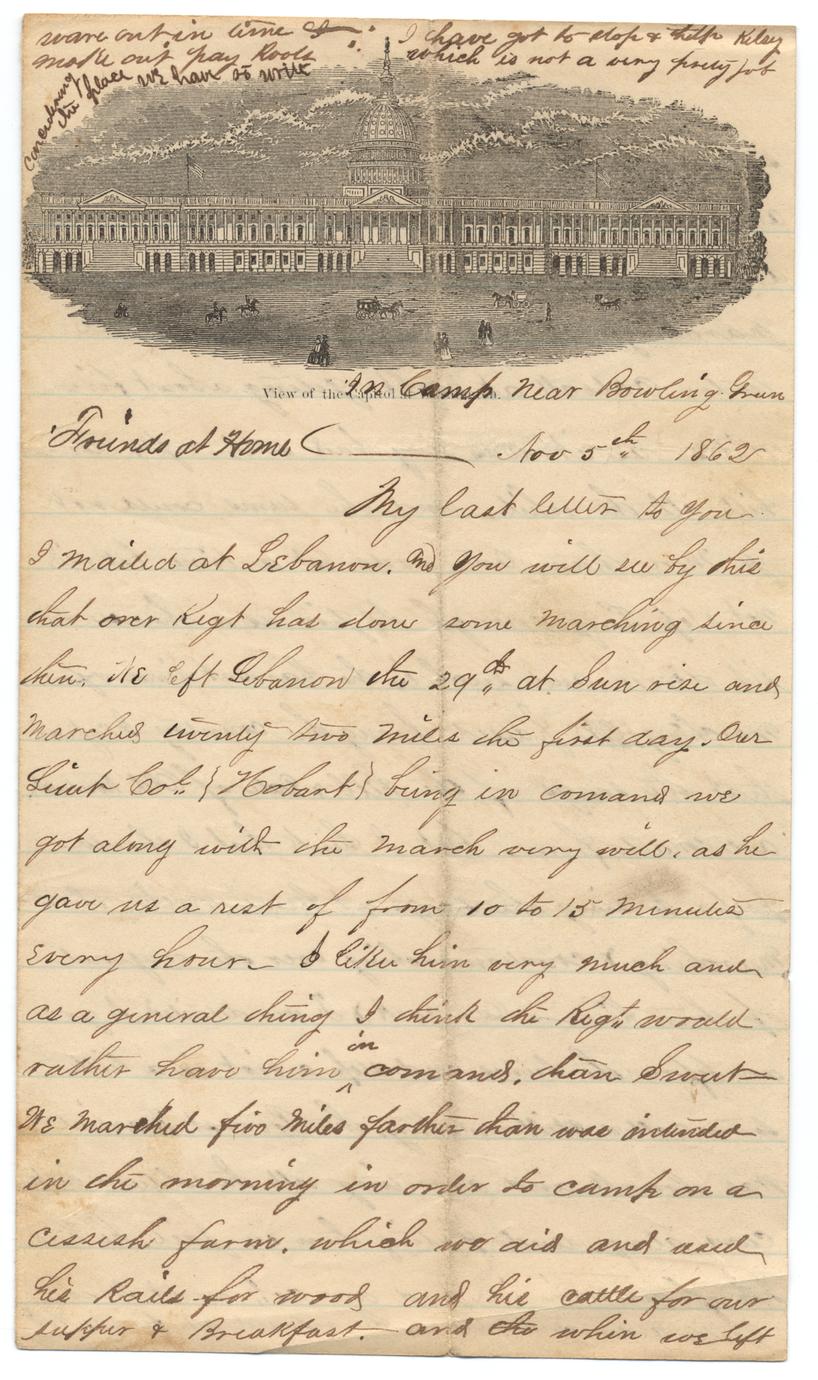 ware out in time &
make out pay Rools
Considering
the place we have to write
I have got to stop & help Kelsey
which is not a very prety job
View of the Capitol at
In Camp Near Bowling Green
Friends at Home Nov 5th 1862
My last letter to you
I mailed at Lebanon. And you will see by this
that over Regt has done some marching since
then. We left Lebanon the 29th at Sun rise and
Marched twenty two miles the first day. Our
Lieut Col. {Hobart} being in comand we
got along with the march very well, as he
gave us a rest of from 10 to 15 minutes
Every hour - I like him very much and
as a general thing I think the Regt would
rather have him in comand, than Sweet
We Marched five Miles farther than was intended
in the morning in order to camp on a
cessesh farm. which we did and used
his Rails for wood and his cattle for our
supper & Breakfast. and the when we left